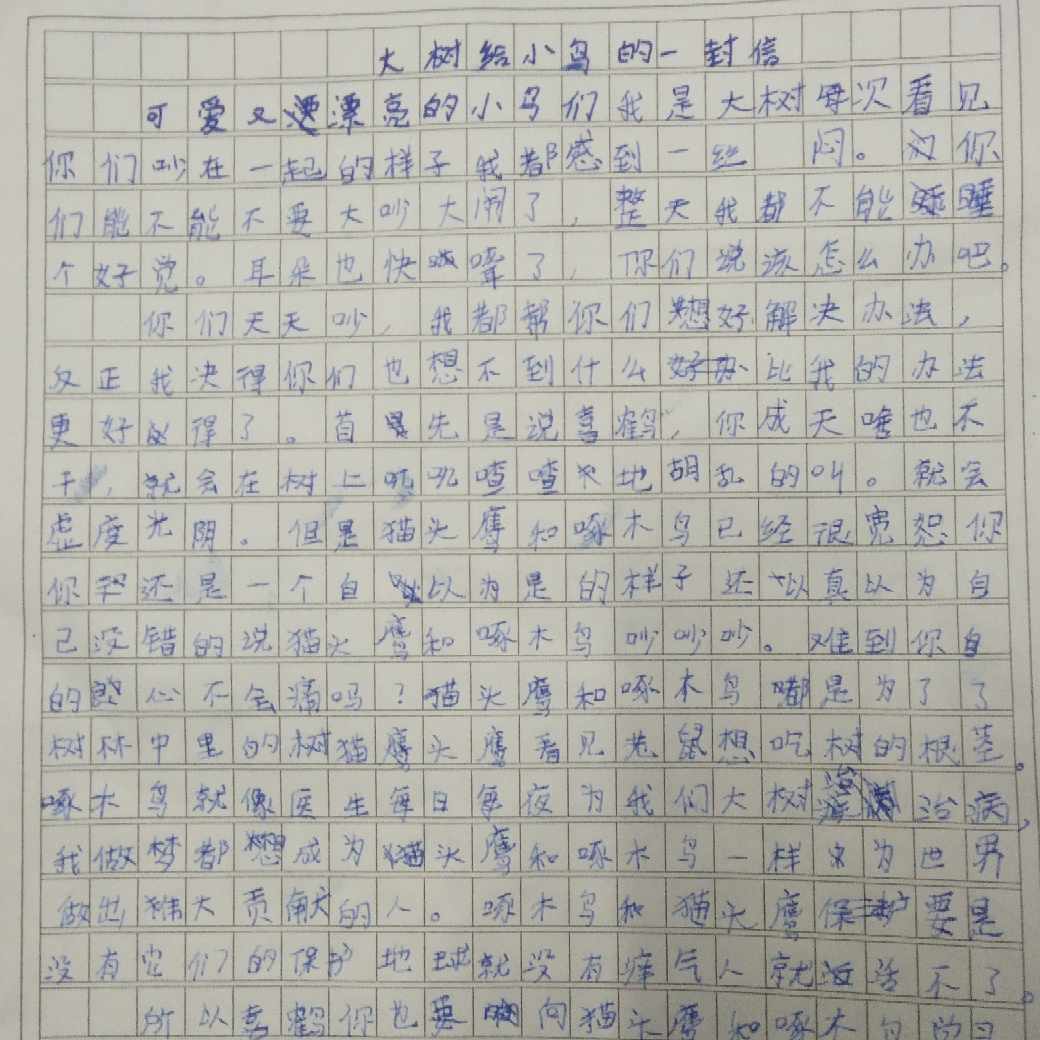 大树给小鸟的一封信
可爱又漂亮的小鸟们我是大树每次看见
你们吵在一起的样子我都感到一丝闷。你
们能不能不要大吵大闹了,整天我都不能睡
个好觉。耳朵也快聋了,你们说该怎么办吧。
你们天天吵,我都帮你们想好解决办法,
反正我决得你们也想不到什么比我的办法
更好得了。首先是说喜鹤,你成天啥也不
干,就会在树上叽叽喳喳地胡乱的叫。就会
虚度光阴。但是猫头鹰和啄木鸟已经很宽恕你
你还是一个自以为是的样子还以真以为自
己没错的说猫头鹰和啄木鸟吵吵吵。难到你自
的良心不会痛吗?猫头鹰和啄木鸟都是为了了
树林中里的树猫鹰头鹰看见老鼠想吃树的根茎。
啄木鸟就像医生每日每夜为我们大树治病,
我做梦都想成为猫头鹰和啄木鸟一样为世界
做出伟大贡献的人。啄木鸟和猫头鹰保护要是
没有它们的保护地球就没有痒气人就活不了。
所以喜鹤你也要向猫头鹰和啄木鸟的